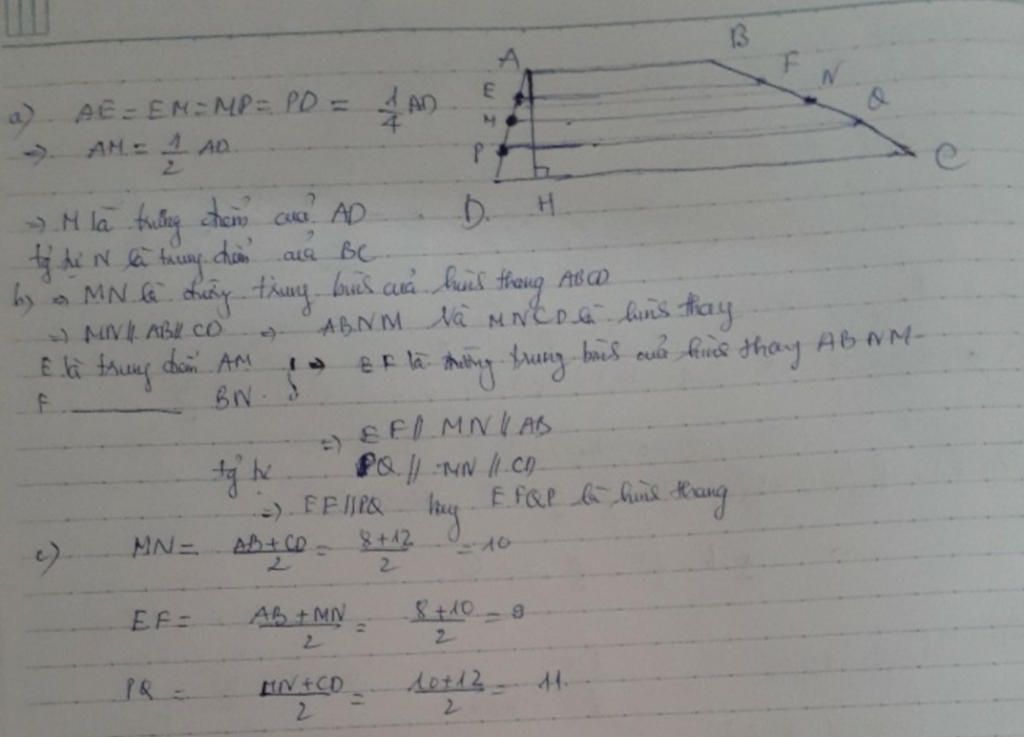 A B F N Q
E M P
D. H C
a) AE = EM = MP = PD = 1/4 AD
=> AM = 1/2 AD
=> M là trung điểm của AD
tg tự N là trung điểm của BC
b) => MN là đường trung bình của hình thang ABCD
=> MN // AB // CD => ABNM và MNCD là hình thang
E là trung điểm AM } => EF là đường trung bình của hình thang ABNM
F ———— BN
=> EF // MN // AB
tg tự PQ // MN // CD
=> EF // PQ hay EFQP là hình thang
c) MN = (AB + CD)/2 = (8+12)/2 = 10
EF = (AB + MN)/2 = (8+10)/2 = 9
PQ = (MN + CD)/2 = (10+12)/2 = 11.